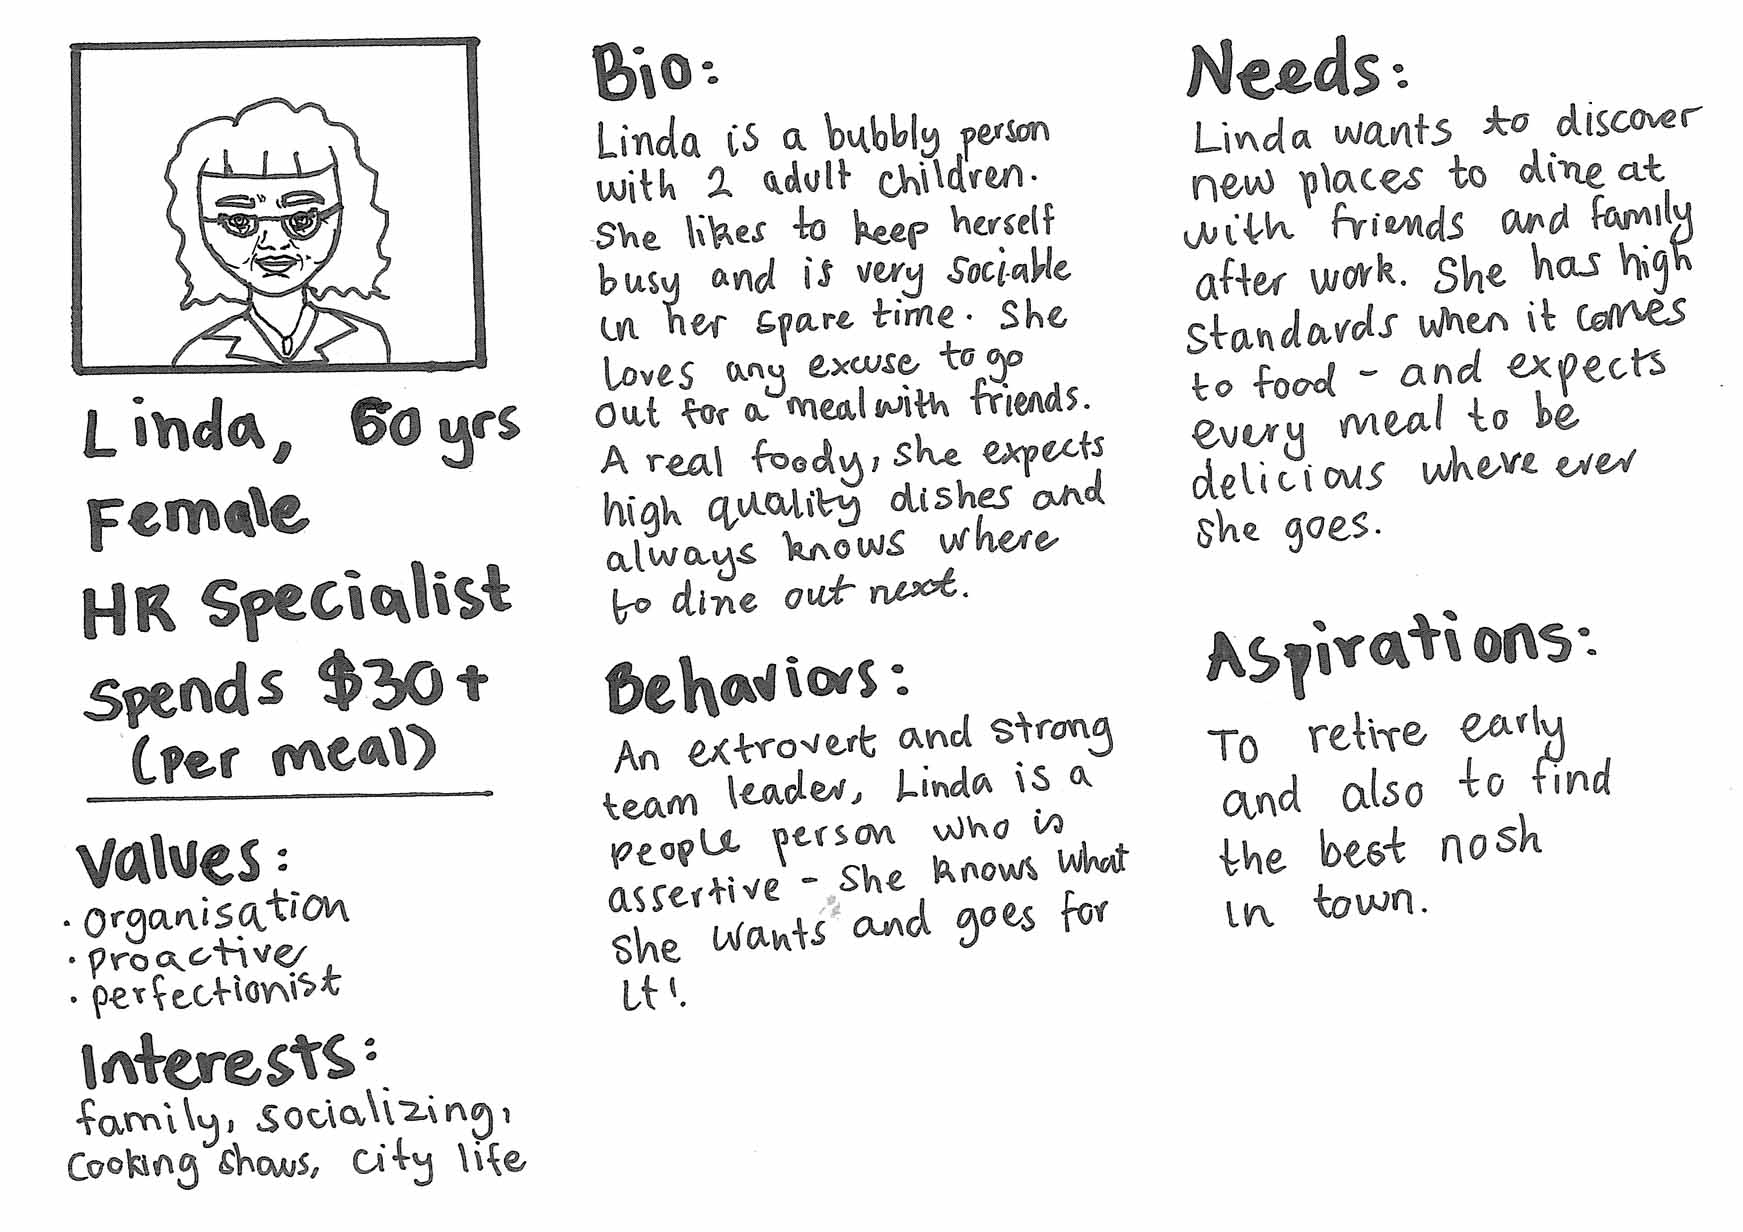 Linda, 60 yrs
Female
HR Specialist
Spends $30+
(per meal)
Values:
· organisation
· proactive
· perfectionist
Interests:
family, socializing,
cooking shows, city life
Bio:
Linda is a bubbly person
with 2 adult children.
She likes to keep herself
busy and is very sociable
in her spare time. She
loves any excuse to go
out for a meal with friends.
A real foody, she expects
high quality dishes and
always knows where
to dine out next.
Behaviors:
An extrovert and strong
team leader, Linda is a
people person who is
assertive - She knows what
she wants and goes for
it!
Needs:
Linda wants to discover
new places to dine at
with friends and family
after work. She has high
standards when it comes
to food - and expects
every meal to be
delicious where ever
she goes.
Aspirations:
To retire early
and also to find
the best nosh
in town.